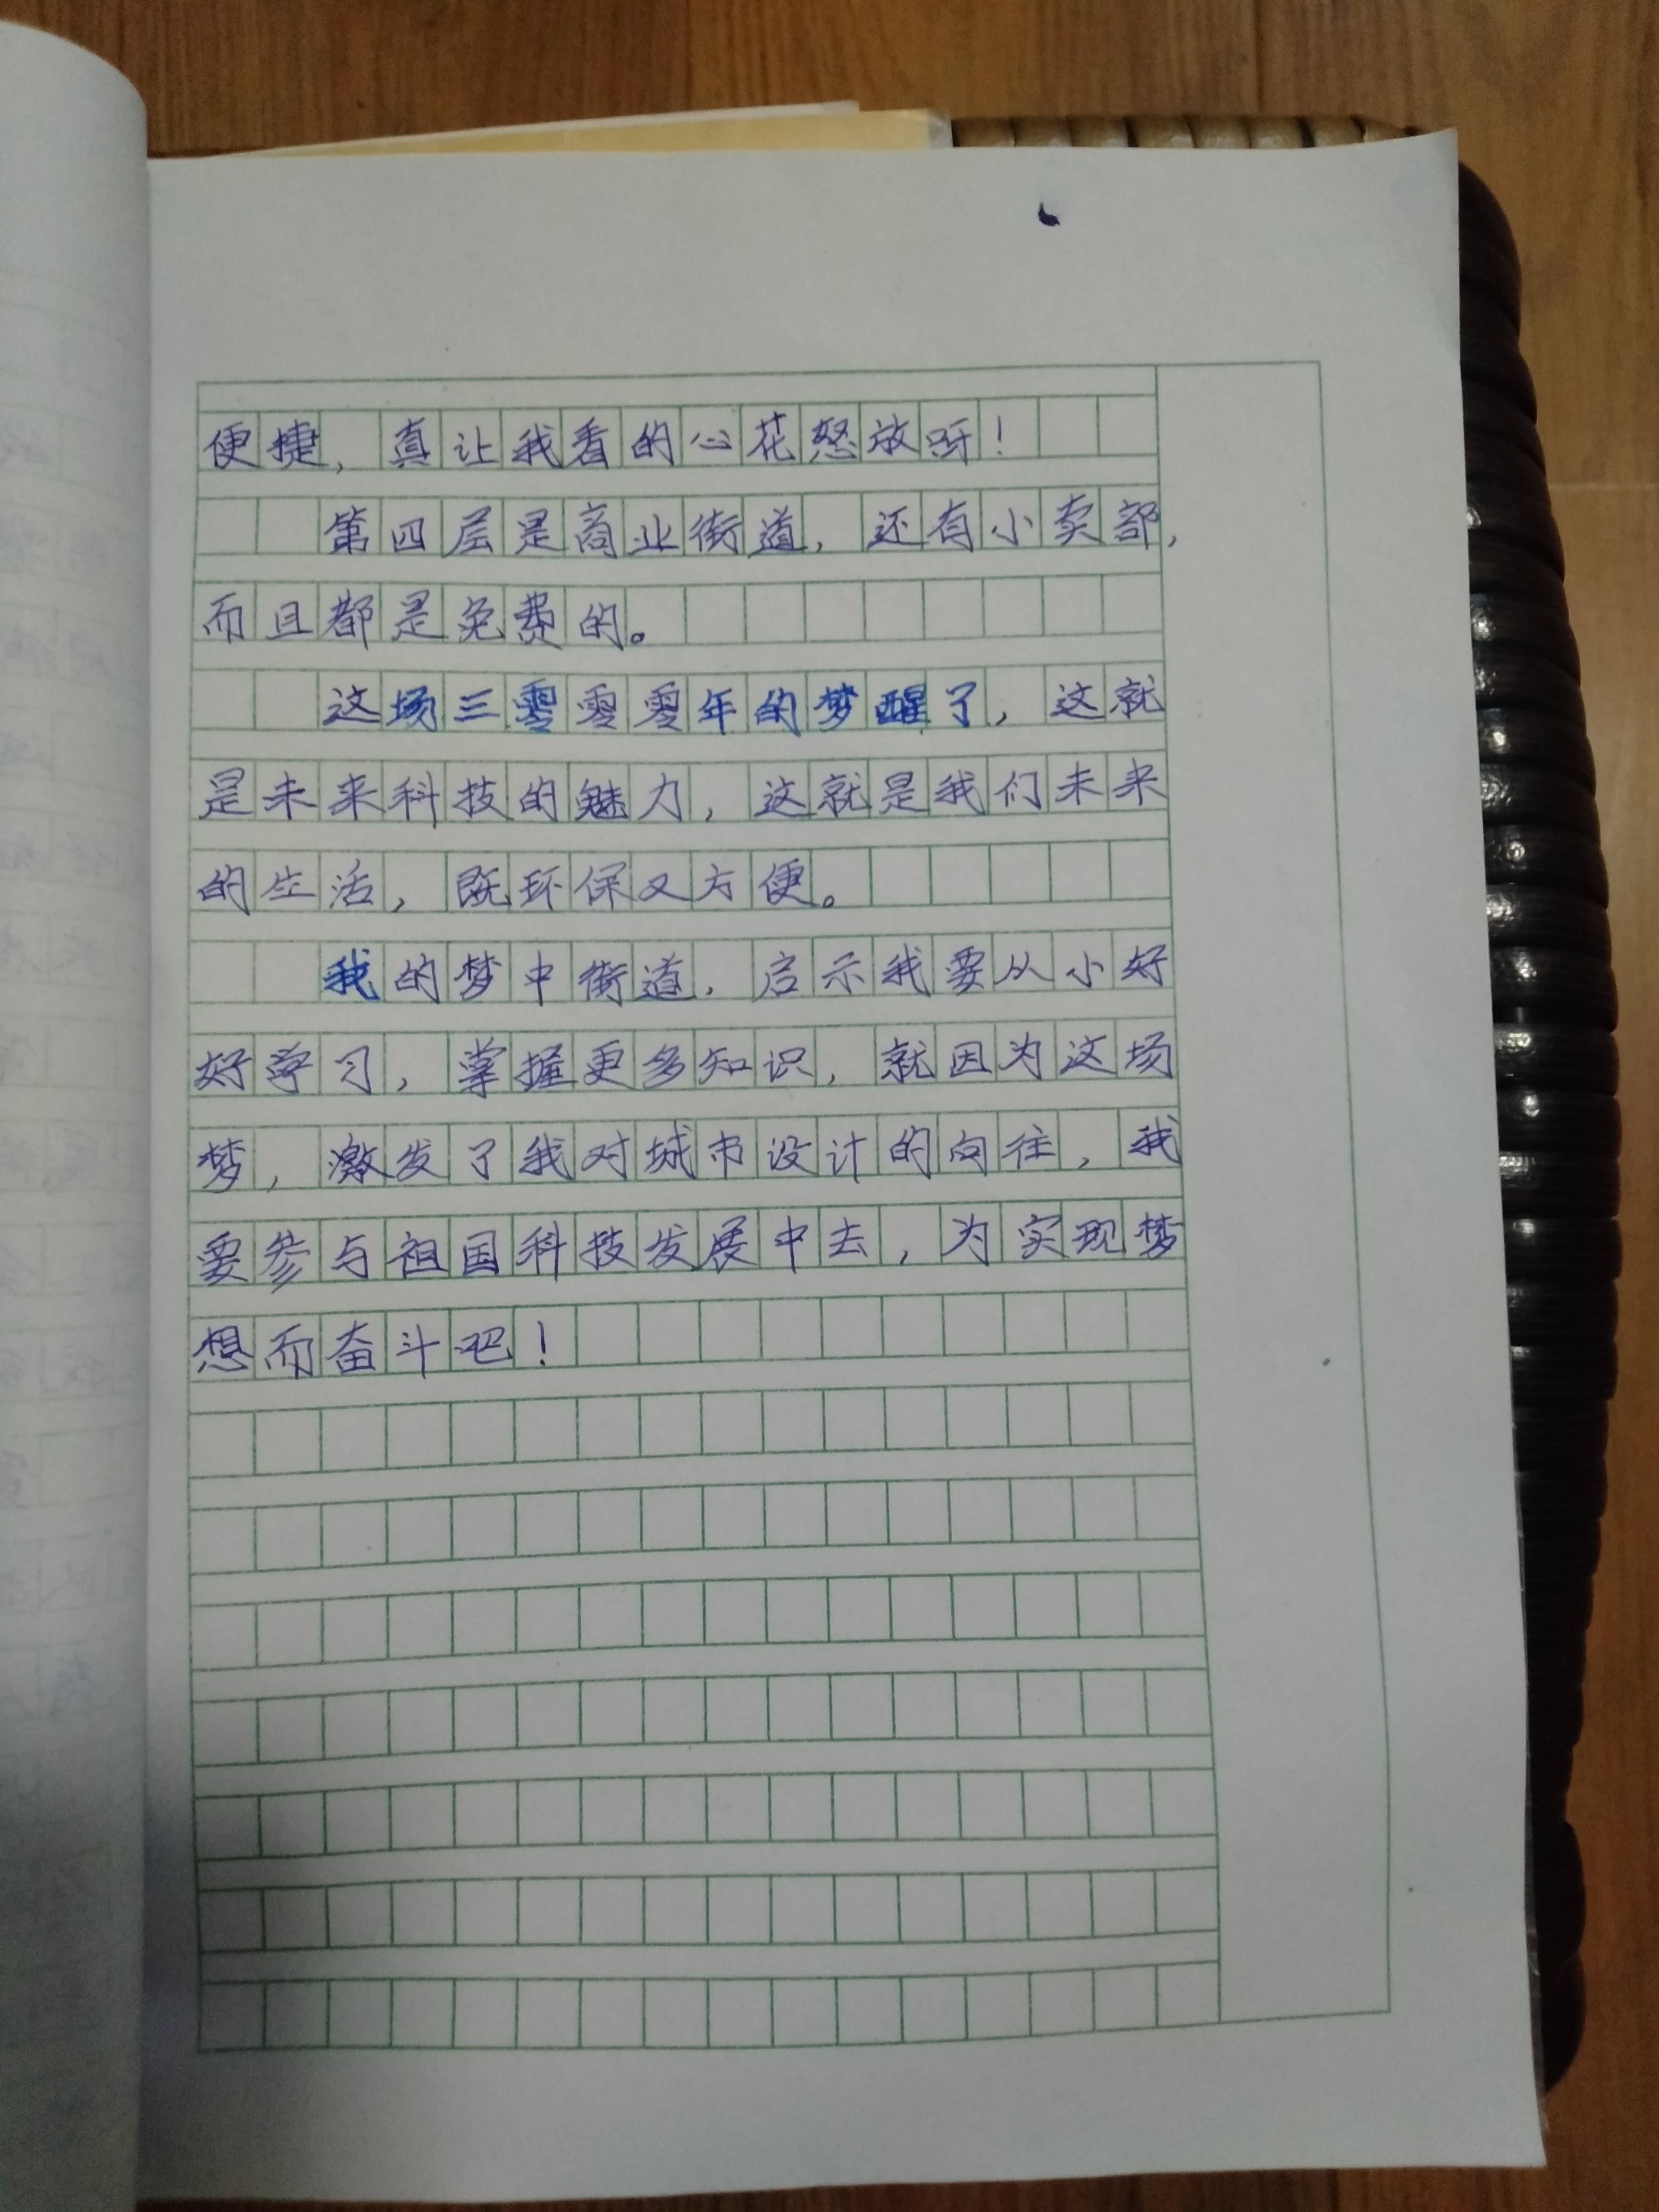 便捷，真让我看的心花怒放呀！
第四层是商业街道，还有小卖部，
而且都是免费的。
这场三零零零年的梦醒了，这就
是未来科技的魅力，这就是我们未来
的生活，既环保又方便。
我的梦中街道，启示我要从小好
好学习，掌握更多知识，就因为这场
梦，激发了我对城市设计的向往，我
要参与祖国科技发展中去，为实现梦
想而奋斗吧！